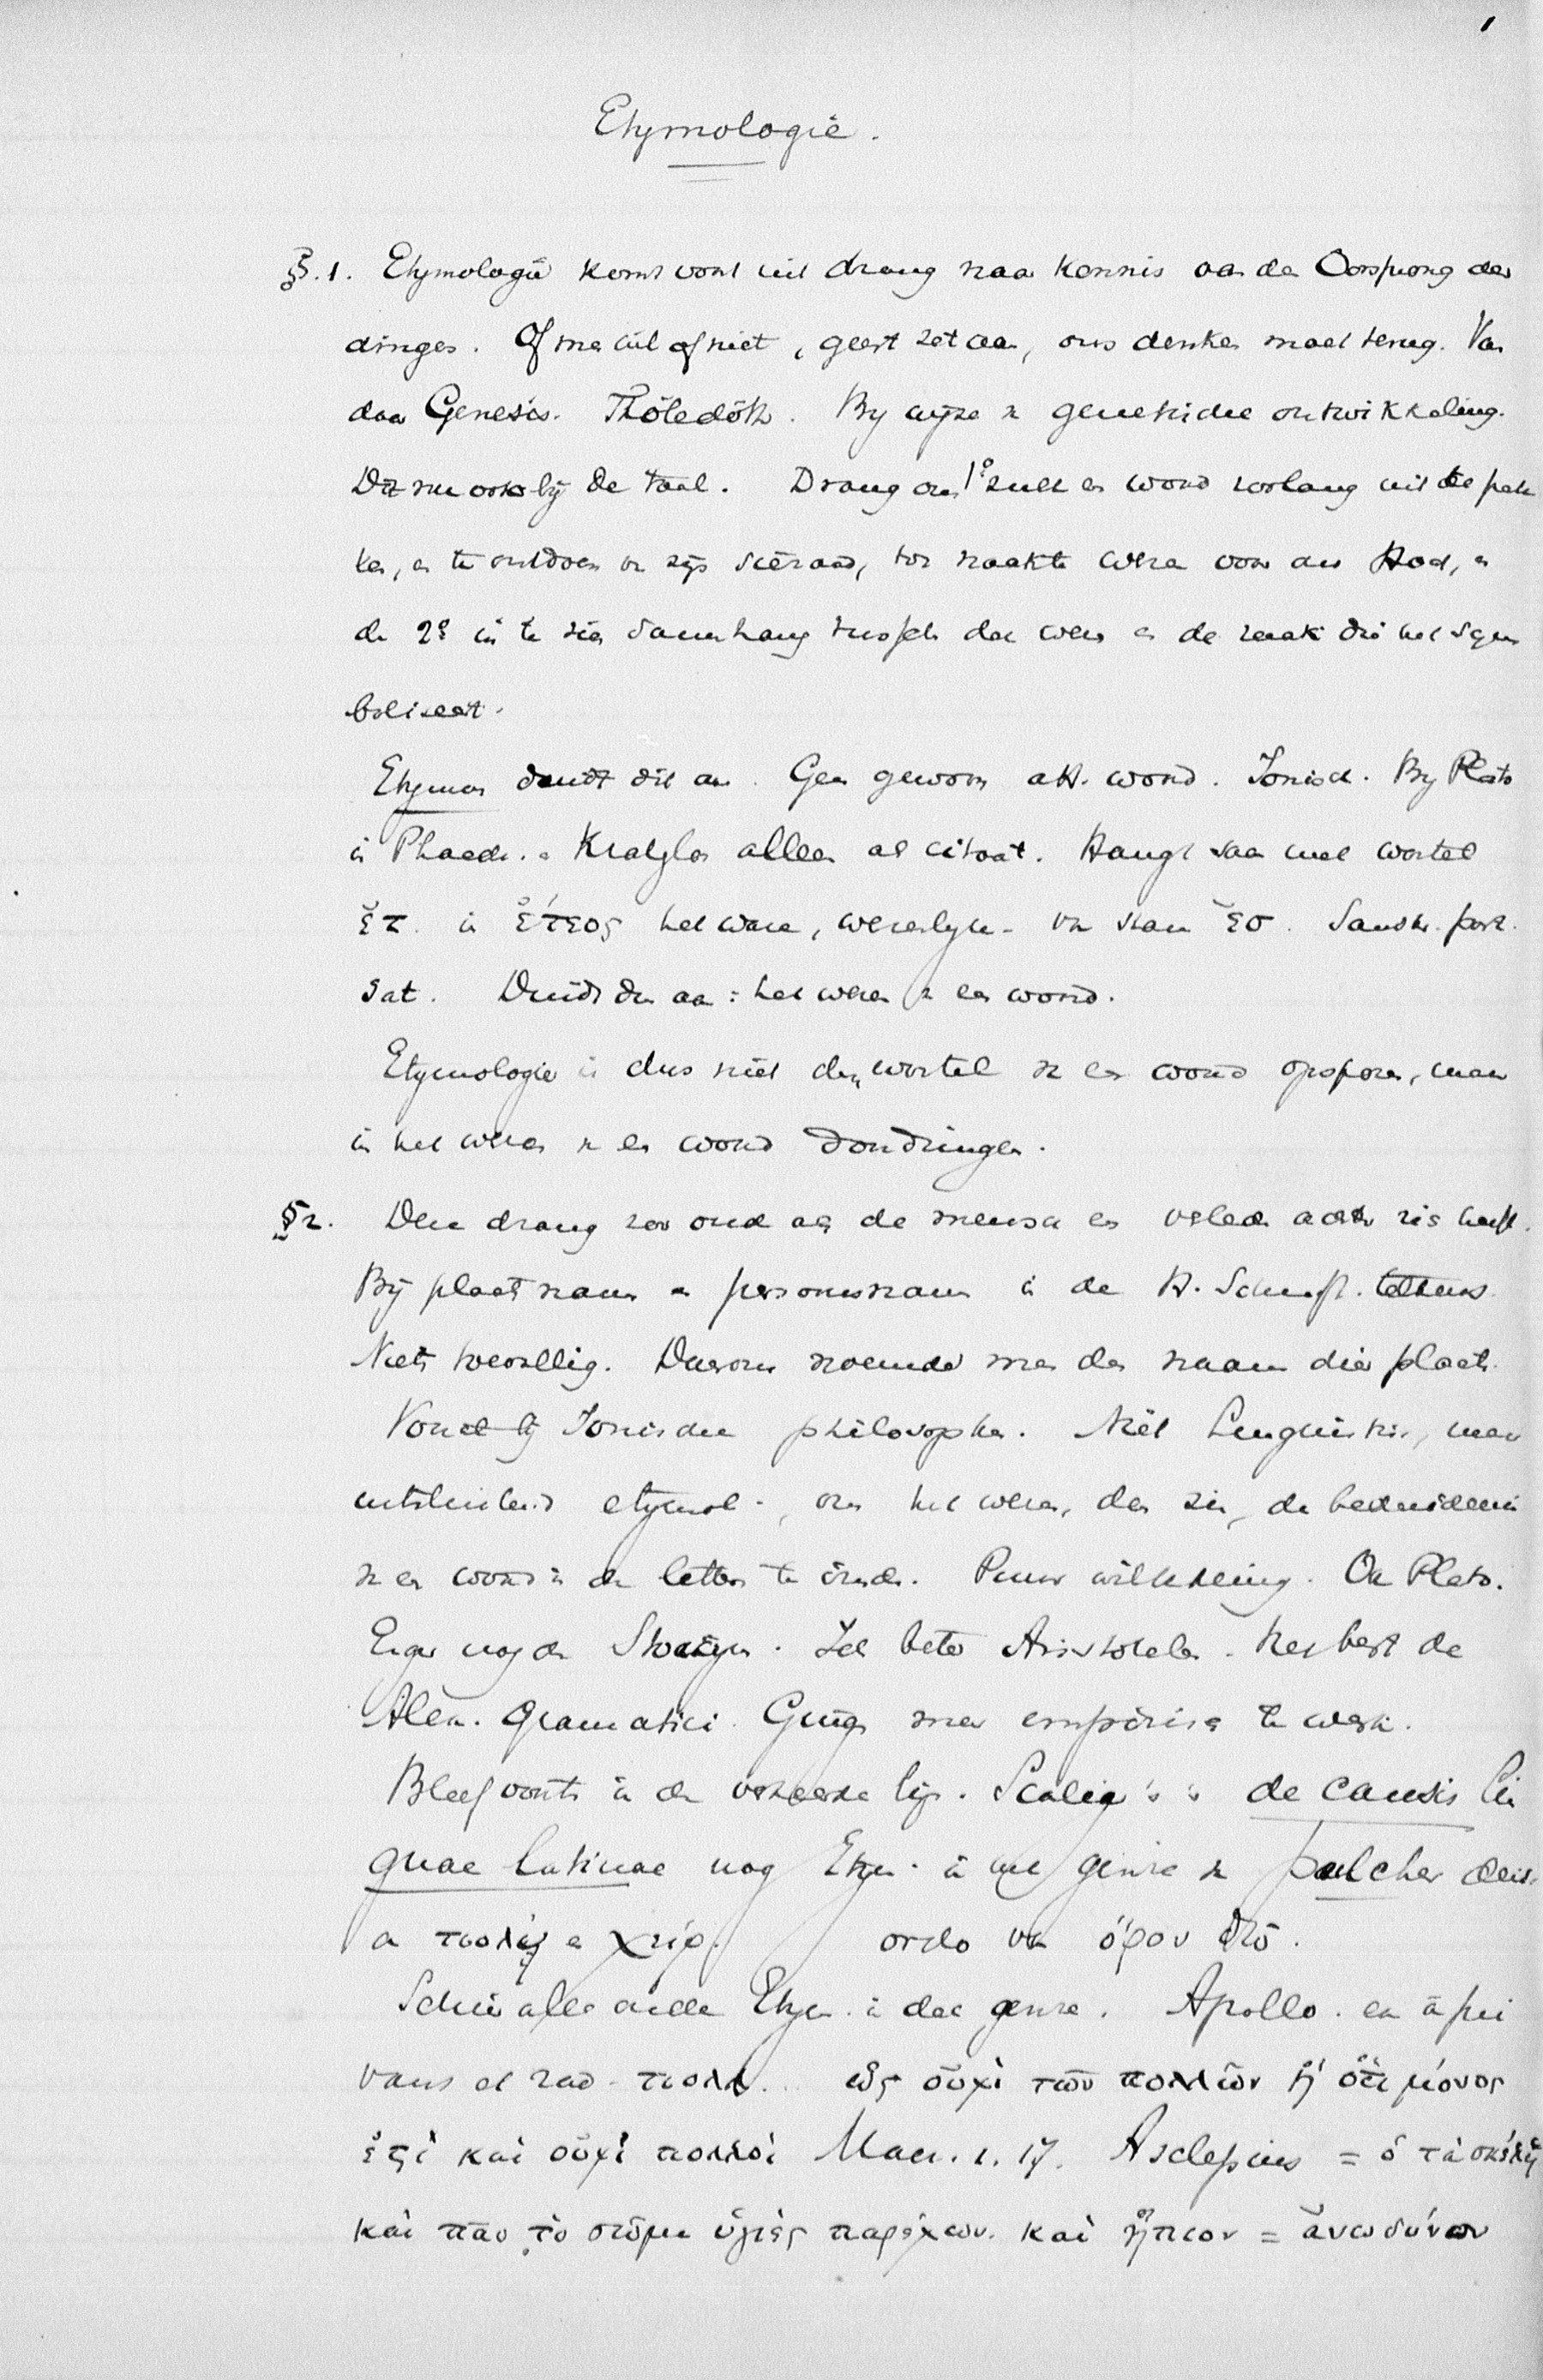 1
Etymologie.
§.1. Etymologie komt voort uit drang naar kennis van den Oorsprong der
dingen. Of men wil of niet, geest zet aan, ons denken moet terug. Van
daar Genesis. Thôledôth. By wijze v genetische ontwikkeling.
Dit nu ook bij de taal. Drang om 1° zulk en woord zoolang uit te pak
ken, en te ontdoen van zijn sieraad, tot naakte wezen voor ons staat, en
dan 2° in te zien samenhang tusschen dat wezen en de zaak die het sym
boliseert.
Etymon duidt dit aan. Geen gewoon att. woord. Ionisch. By Plato
in Phaedr. en Kratylos alleen als citaat. Hangt saam met wortel
ἐτ. in ἐτεος het ware, wezenlyke. van stam ἐσ. Sanskr. part.
sat. Duidt dus aan: het wezen v een woord.
Etymologie is dus niet den wortel v een woord opsporen, maar
in het wezen v een woord doordringen.
§2. Deze drang zoo oud als de mensch een verleden achter zich heeft.
Bij plaatsnamen en persoonsnamen in de H. Schrift. telkens
Niets toevallig. Daarom noemde men den naam dier plaats
Voorts bij Ionische philosophen. Niet Linguistiek, maar
uitsluitend etymol., om het wezen, den zin, de beteekenis
v en woord in de letters te vinden. Puur willekeurig. Ook Plato.
Erger nog de Stoicijnen. Iets beter Aristoteles. Het best de
Alex. Gramatici. Gingen meer empirisch te werk.
Bleef voorts in de verkeerde lijn. Scaliger's de causis lin
guae latinae nog Etym. in het genre v pulcher
a πολύ en χείρ. ordo van ὅρον
Schier alle oude Etym. in dat genre. Apollo. en a pri
vans et rad. πολλ. ὡς οὐχὶ τῶν πολλῶν ἢ ὅτι μόνος
ἐστὶ καὶ οὐχὶ πολλοί Macr. 1. 17. Asclepius = ὁ τὰ σκέλη
καὶ πᾶν τὸ σῶμα ὑγιὲς παρέχων. καὶ ἤπιον = ἀνώδυνον